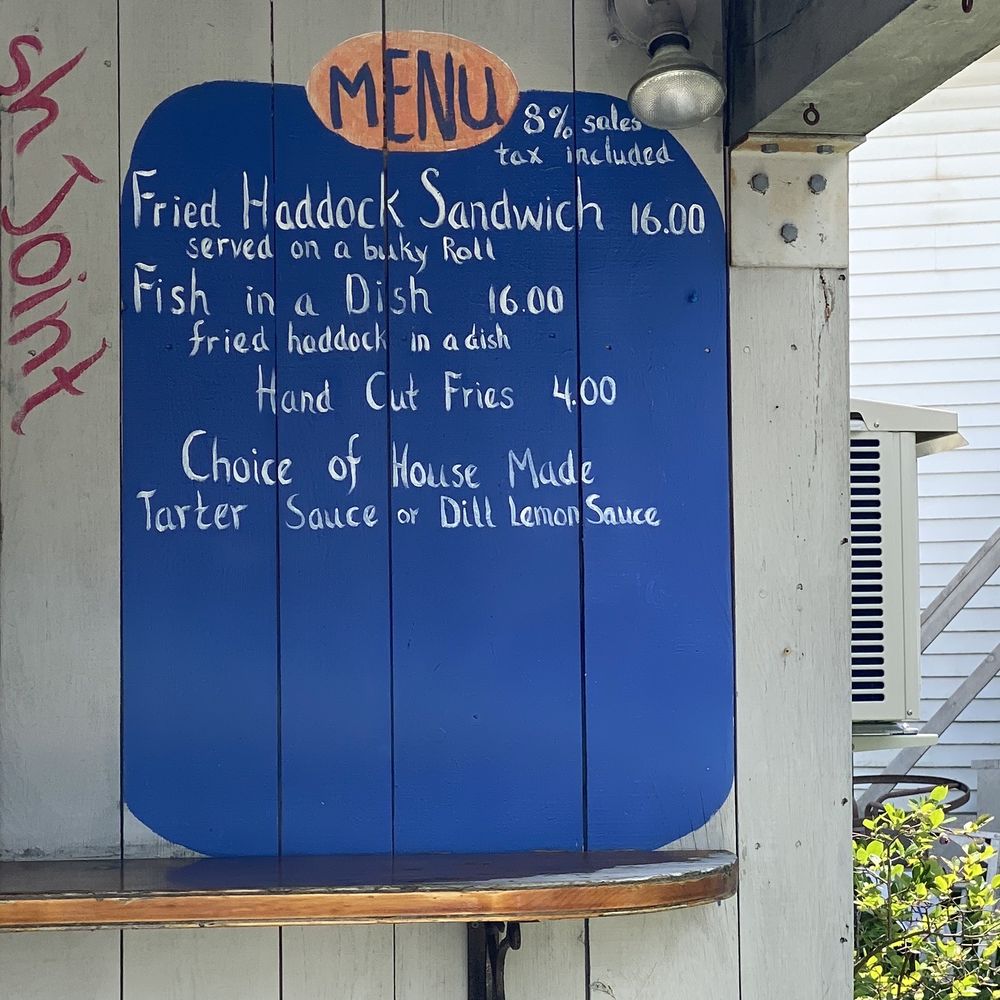 sh Joint
MENU
8% sales
tax included
Fried Haddock Sandwich 16.00
served on a bulky Roll
Fish in a Dish 16.00
fried haddock in a dish
Hand Cut Fries 4.00
Choice of House Made
Tarter Sauce or Dill Lemon Sauce